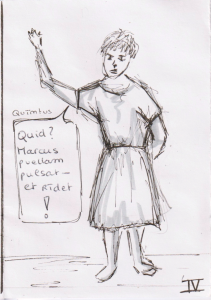 Quintus
Quid?
Marcus
puellam
pulsat –
et ridet
!
IV